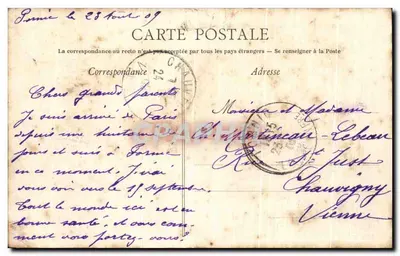 Pornic le 23 Aout 09
CARTE POSTALE
La correspondance au recto n'est pas acceptée par tous les pays étrangers — Se renseigner à la Poste
Correspondance
Adresse
Chers grands parents
Je suis arrivé de Paris
depuis une huitaine de
jours et suis à Pornic
en ce moment. J'irai
vous voir vers le 15 septembre.
Tout le monde ici est en
bonne santé, et vous com-
ment vous portez-vous?
Monsieur et Madame
Lebeau
Rue St Just
Chauvigny
Vienne